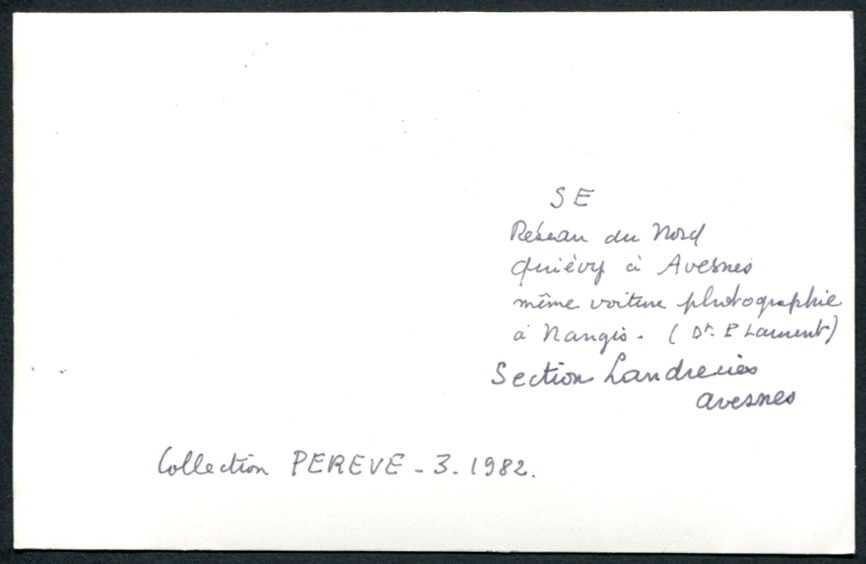 SE
Réseau du Nord
Quiévy à Avesnes
même voiture photographie
à Nangis. (Dr. P Laurent)
Section Landrecies
avesnes
Collection PEREVE - 3. 1982.